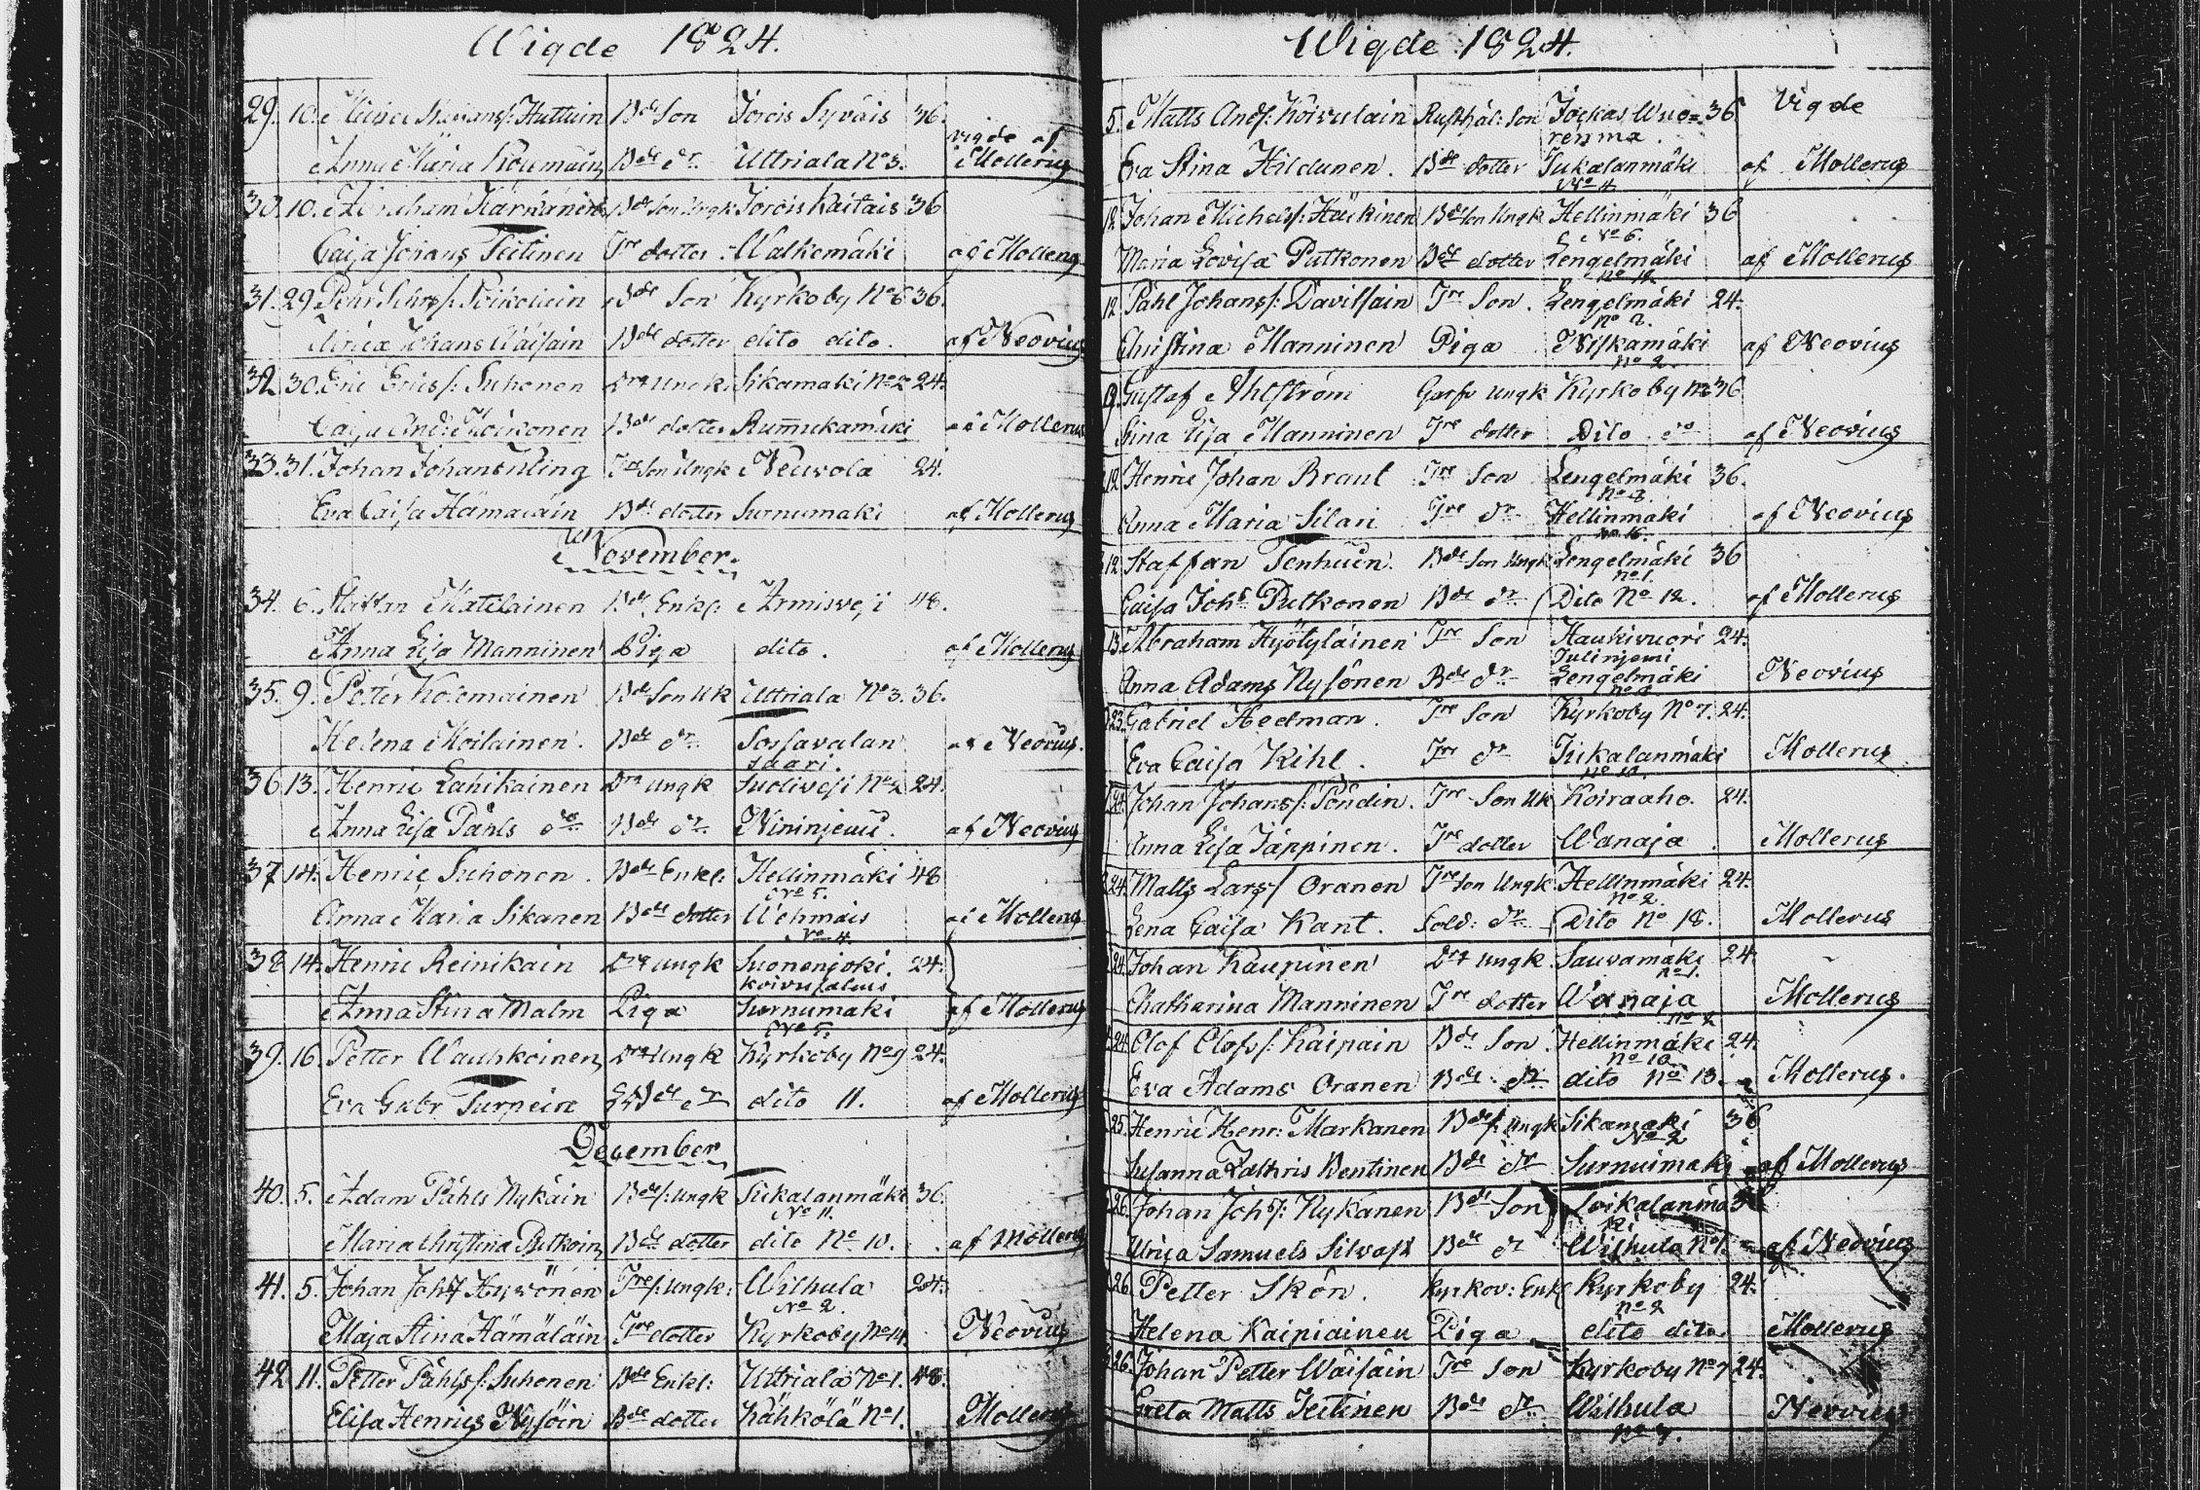 Wigde 1824.
29. 10. Huttuin Bde Son Jorois Syväis 36.
Anna Maria Bde dr Uttriala No 3. vigde af Mollerus
30. 10. Abraham Kärkäinen Bde Son Ungk Jorois Kaitais 36
Caisa Johans Teitinen Tre dotter Walkemäki af Mollerus
31. 29. Bde Son Kyrkoby No 6 36.
Johans Wäisäin Bde dotter dito dito. af Neovius
32. 30. Eric Erics/: Suhonen Drg Ungk: Sikamäki No 2 24.
Caisa And: Bde dotter Rummukamäki af Mollerus
33. 31. Johan Johans Tre Son Ungk Neuvola 24.
Eva Caisa Hämäläin Bde dotter Surnumäki af Mollerus
November.
34. 6. Staffan Matilainen Bde Enkl: Armisvesi 48.
Anna Lisa Manninen Piga dito. af Mollerus
35. 9. Petter Koremainen Bde Son Uk Uttriala No 3. 36.
Helena Moilainen. Bde dr Sorsavalan saari. af Neovius.
36. 13. Henric Lahikainen Drg Ungk Suolivesi No 2 24.
Anna Lisa Påhls do Bde dr af Neovius
37. 14. Henric Suhonen. Bde Enkl: Hellinmäki No 5. 48
Anna Maria Sikanen Bde dotter Wehmais No 4. af Mollerus
38. 14. Henric Reinikain Drg Ungk Suonenjoki. Koivusalmis 24.
Anna Stina Malm Piga Surnumäki No 5. af Mollerus
39. 16. Petter Wauhkoinen Drg Ungk Kyrkoby No 9 24.
Eva Gabr Turpein dr dito 11. af Mollerus
December
40. 5. Adam Påhls Nykäin Bde s: Ungk Tukalanmäki No 11. 36.
Maria Christina Putkoin Bde dotter dito No 10. af Mollerus
41. 5. Johan Johs/ Hyvönen Tre s: Ungk: Wilhula No 2. 24.
Maja Stina Hämäläin Tre dotter Kyrkoby No 14. Neovius
42 11. Petter Påhls/: Suhonen Bde Enkl: Uttriala No 1. 48.
Elisa Henrics Nysöin Bde dotter Kähkölä No 1. Mollerus
Wigde 1824.
5. Matts Ands/: Koivulain Rusthål: Son Jockas Wuo= renma. 36 Vigde
Eva Stina Hildunen. Bde dotter Tukalanmäki No 4 af Mollerus
12 Johan Michels/: Häckinen Bde Son Ungk Hellinmäki No 6. 36
Maria Lovisa Putkonen Bde dotter Lengelmäki No 12. af Mollerus
12 Påhl Johans/: Davitsain Tre Son. Lengelmäki No 2. 24.
Christina Manninen Piga Niskamäki No 2. af Neovius
19. Gustaf Ahlström Ungk Kyrkoby 36
Stina Lisa Manninen Tre dotter Dito do af Neovius
19 Henric Johan Braul Tre Son Lengelmäki No 3. 36.
Anna Maria Silari Tre dr Hellinmäki No 16. af Neovius
12 Staffan Tenhuin. Bde Son Ungk Lengelmäki No 1. 36
Caisa Johs Putkonen Bde dr Dito No 12. af Mollerus
13. Abraham Hyötyläinen Tre Son Haukivuori 24.
Anna Adams Nysönen Bde dr Lengelmäki Neovius
23. Gabriel Hedman. Tre Son Kyrkoby No 7. 24.
Eva Caisa Kihl. Tre dr Tukalanmäki No 10. Mollerus
24. Johan Johans/: Pöndin. Tre Son Uk Koiraaho. 24.
Anna Lisa Jäppinen. Tre dotter Wanaja. Mollerus
24. Matts Lars/ Oranen Tre Son Ungk Hellinmäki No 2. 24.
Lena Caisa Kant. Sold: dr Dito No 18. Mollerus
24. Johan Kaupinen Drg Ungk. Sauvamäki No 1. 24.
Chatharina Manninen Tre dotter Wanaja No 2 Mollerus
24. Olof Olofs/: Kaipain Bde Son. Hellinmäki No 10. 24.
Eva Adams Oranen Bde dr dito No 13. Mollerus.
25. Henric Henr: Markanen Bde s: Ungk Sikamäki No 2 36
Susanna Zachris Kentinen Bde dr Surnuimäki af Mollerus
26. Johan Johs/: Nykänen Bde Son
Ulrica Samuels Silvast Bde dr Wilhula No 1. af Neovius
26. Petter Skön. Kyrkov: Enkl Kyrkoby No 2 24.
Helena Kaipiainen Piga dito dito Mollerus
26. Johan Petter Wäisäin Tre Son Kyrkoby No 7 24.
Greta Matts Teitinen Bde dr. Wilhula No 7. Neovius